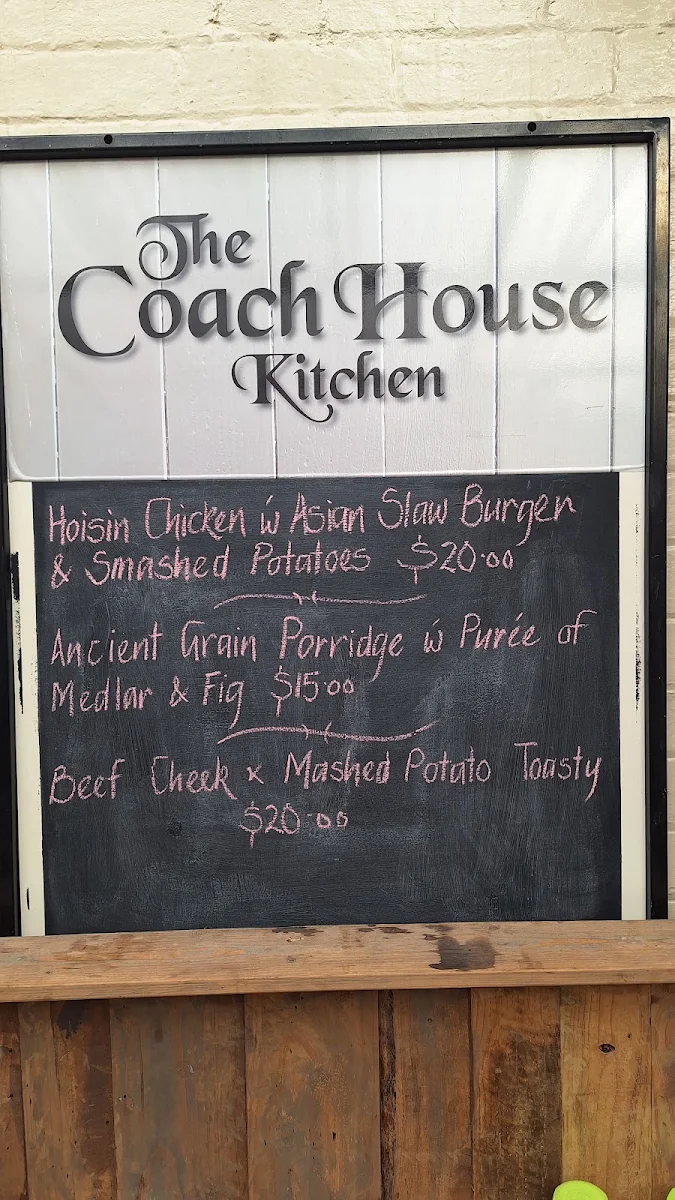 The
Coach House
Kitchen
Hoisin Chicken ẃ Asian Slaw Burger
& Smashed Potatoes $20.00
Ancient Grain Porridge ẃ Purée of
Medlar & Fig $15.00
Beef Cheek x Mashed Potato Toasty
$20.00